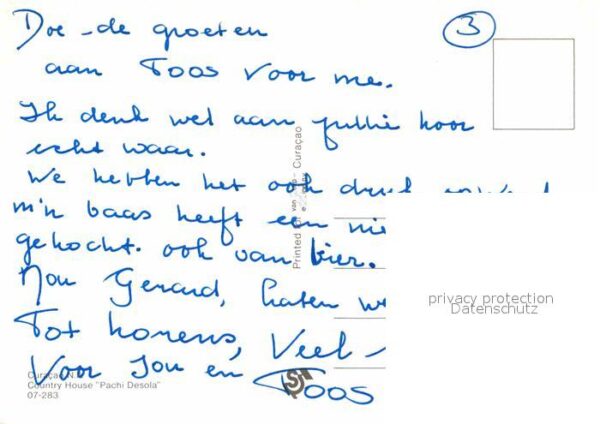 Doe de groeten
3
aan Toos voor me.
Ik denk wel aan jullie hoor
echt waar.
We hebben het ook druk
m'n baas heeft een
gekocht. ook van bier.
Nou Gerard, laten we
Tot horens, Veel
Voor Jou en Toos
Printed for van - Curaçao
privacy protection
Datenschutz
Curaçao N.
Country House "Pachi Desola"
07-283